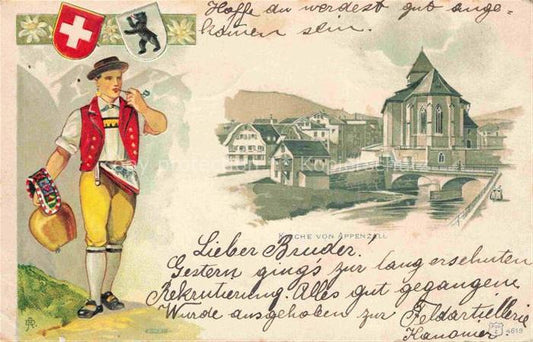 Hoffe du werdest gut ange-
kommen sein.
KIRCHE VON APPENZELL
Lieber Bruder!
Gestern ging's zur lang ersehnten
Rekrutierung. Alles gut gegangen
Wurde ausgehoben zur Feldartillerie
Kanonier.
4619